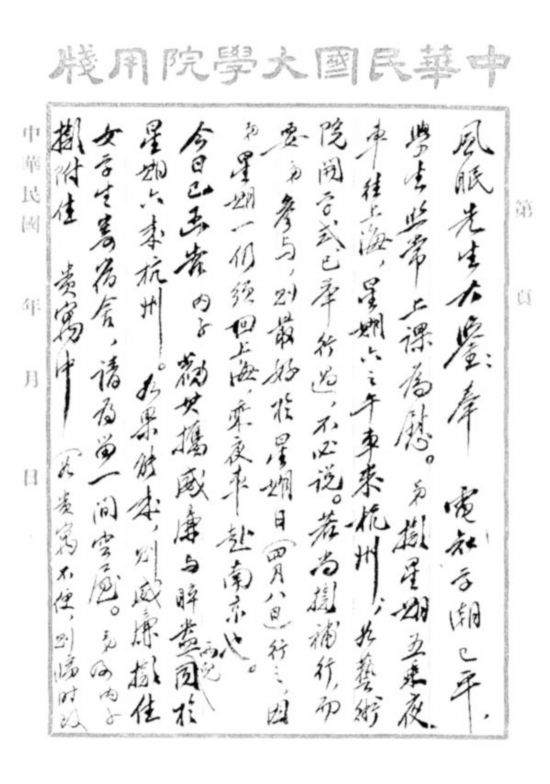 中華民國大學院用牋
第 頁
風眠先生大鑒：奉 電知學潮已平，
學生照常上課為慰。弟擬星期五乘夜
車往上海，星期六之午車來杭州，如藝術
院開學式已舉行過，不必說。若尚擬補行，而
要弟參与，則最好於星期日（四月八日）行之，因
弟星期一仍須回上海，乘夜車赴南京也。
今日已函告 內子 勸其攜威廉与睟盎兩兒同於
星期六來杭州。如果能來，則威廉擬住
女學生寄宿舍，請為留一間空屋。弟及內子
擬附住 貴寓中（若貴寓不便，則臨時改
中華民國 年 月 日